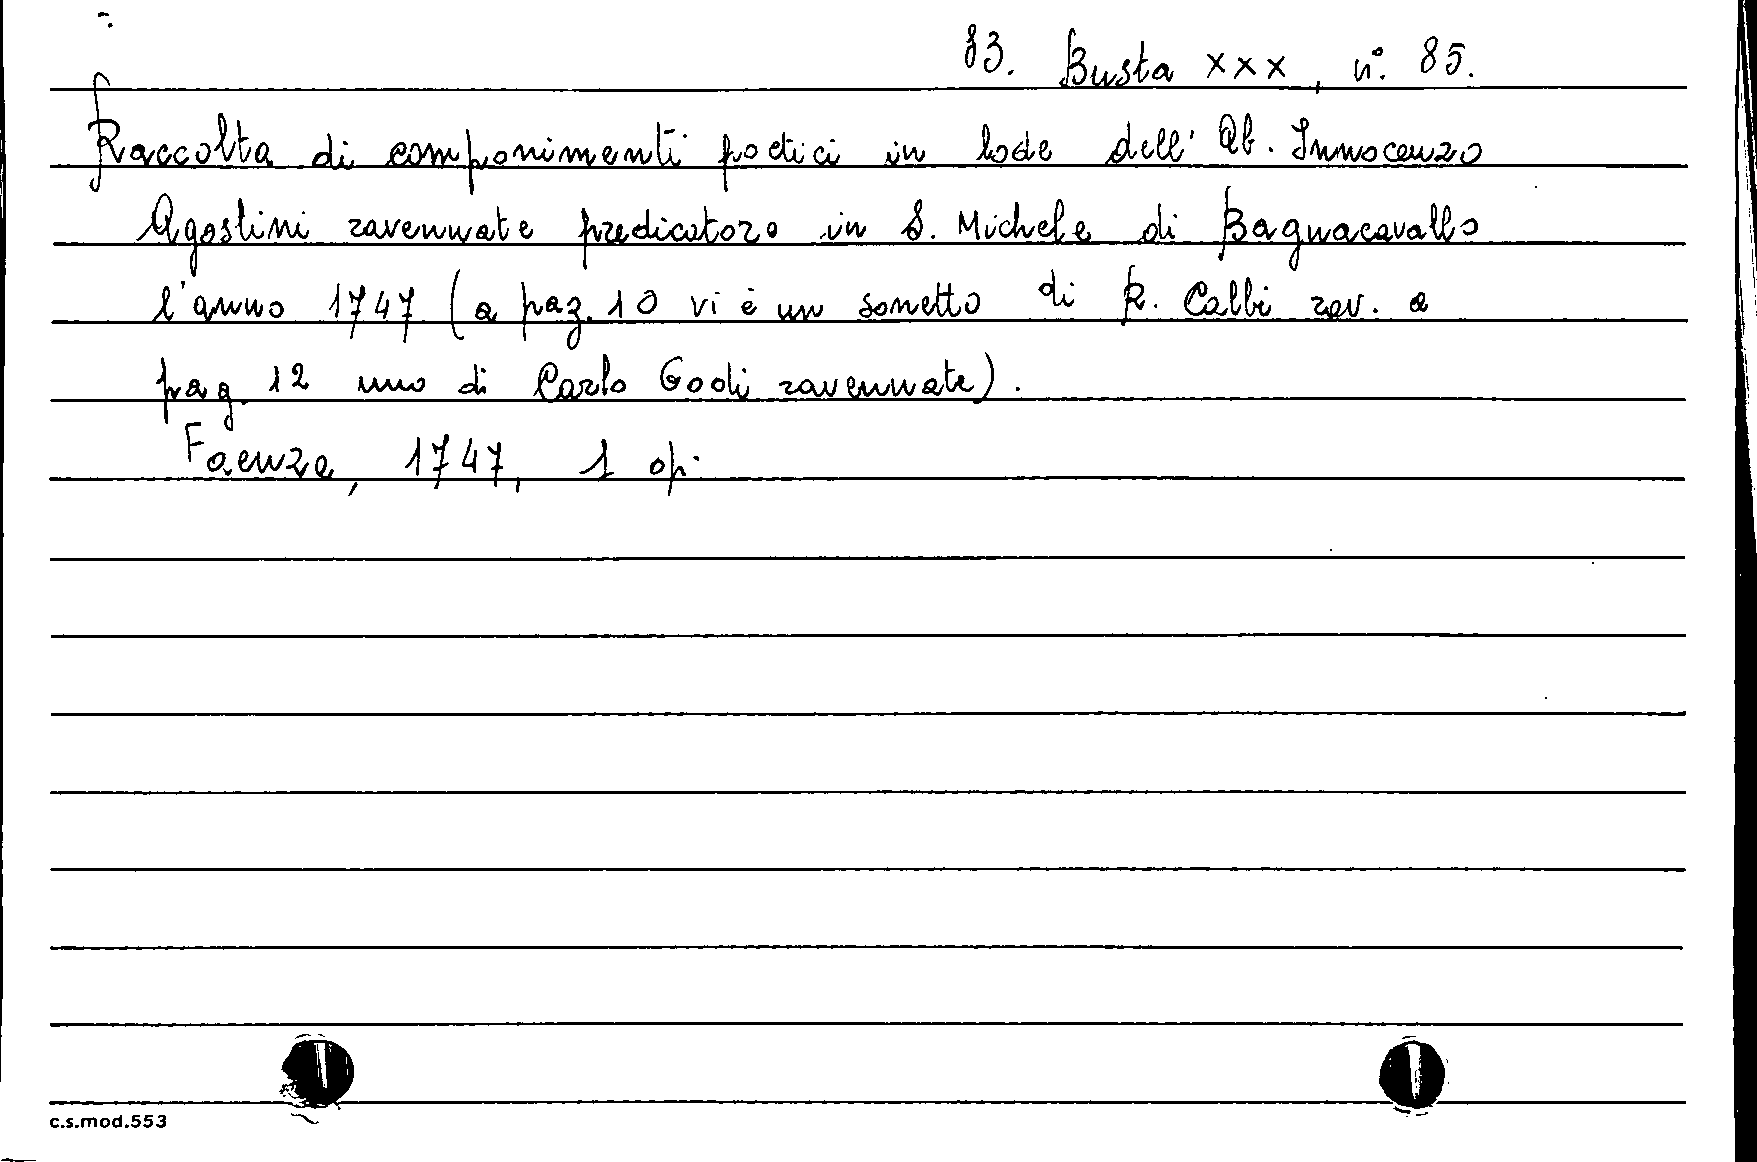 83. Busta XXX, n°. 85.
Raccolta di componimenti poetici in lode dell'Ab. Innocenzo
Agostini ravennate predicatore in S. Michele di Bagnacavallo
l'anno 1747 (a pag. 10 vi è un sonetto di R. Calbi rav. a
pag. 12 uno di Carlo Godi ravennate).
Faenza, 1747, 1 op.
c.s.mod.553